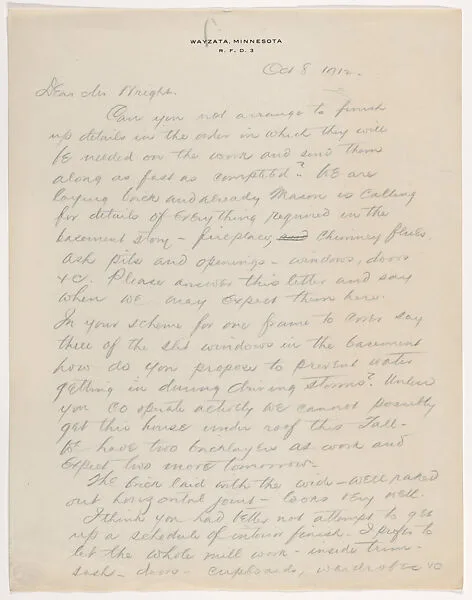 WAYZATA, MINNESOTA
R. F. D. 3
Oct 8 1912.
Dear Mr Wright.
Can you not arrange to finish
up details in the order in which they will
be needed on the work and send them
along as fast as completed? We are
laying brick and already Mason is calling
for details of everything required in the
basement story - fireplaces and Chimney flues
Ash pits and openings - windows, doors
&c. Please answer this letter and say
when we may expect them here.
In your scheme for one frame to cover say
three of the slit windows in the basement
how do you propose to prevent water
getting in during driving storms? Unless
you co operate actively we cannot possibly
get this house under roof this Fall -
We have two bricklayers at work and
expect two more tomorrow -
The brick laid with the wide - well raked
out horizontal joint - looks very well.
I think you had better not attempt to get
up a schedule of interior finish. I prefer to
let the whole mill work - inside trim -
sash - doors - cupboards, wardrobes